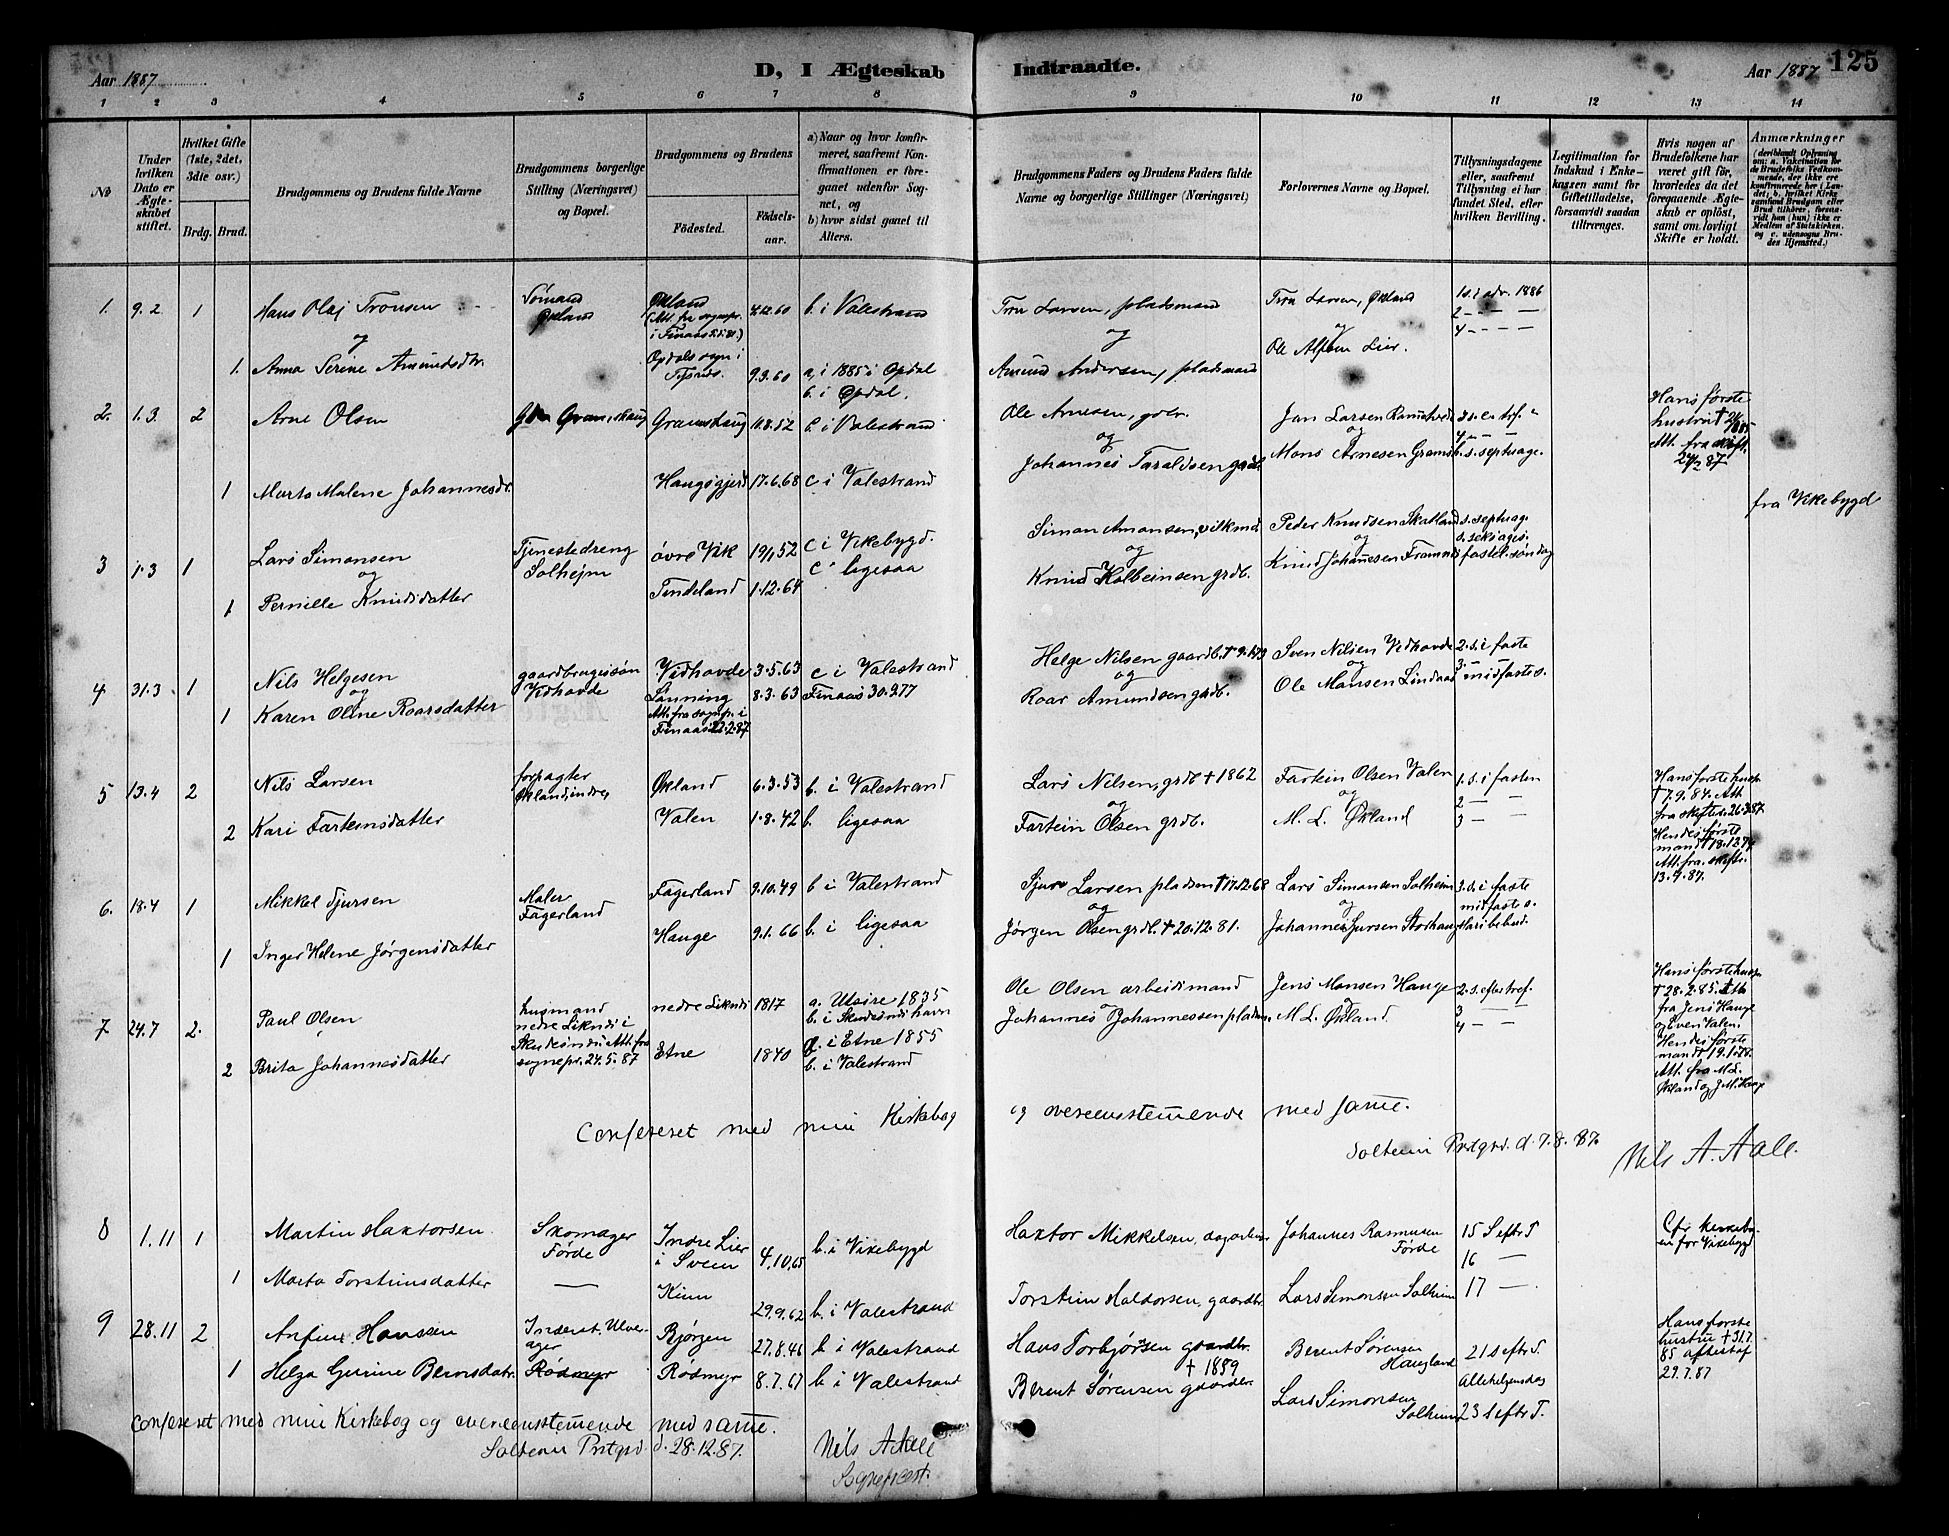 125
Aar 1887
D, I Ægteskab Indtraadte.
Aar 1887
1 2 3 4 5 6 7 8 9 10 11 12 13 14
No
Under hvilken Dato er Ægteskabet stiftet.
Hvilket Gifte (1ste, 2det, 3die osv.)
Brdg. Brud.
Brudgommens og Brudens fulde Navne
Brudgommens borgerlige Stilling (Næringsvei) og Bopæl.
Brudgommens og Brudens
Födested.
Födselsaar.
a) Naar og hvor konfirmeret, saafremt Konfirmationen er foregaaet udenfor Sognet, og
b) hvor sidst gaaet til Alters.
Brudgommens Faders og Brudens Faders fulde Navne og borgerlige Stillinger (Næringsvei)
Forlovernes Navne og Bopæl.
Tillysningsdagene eller, saafremt Tillysning ei har fundet Sted, efter hvilken Bevilling.
Legitimation for Indskud i Enkekassen samt for Giftetilladelse, forsaavidt saadan tiltrænges.
Hvis nogen af Brudefolkene har været gift før, hvorledes da det foregaaende Ægteskab er oplöst, samt om lovligt Skifte er holdt.
Anmærkninger (deriblandt Oplysning om: a. Vakcination for de Brudefolks Vedkommende, der ikke ere konfirmerede her i Landet; b. hvilket Kirkesamfund Brudgom eller Brud tilhörer, forsaavidt han (hun) ikke er Medlem af Statskirken. og c. udensogns Brudes Hjemsted.)
1. 9.2 1 Hans Olaj Tronsen Sømand Økland Økland 4.12.60 b. i Valestrand Tron Larsen, pladsmand Tron Larsen, Økland 1 s. i adv. 1886
og og 2 - - -
4 - - -
1. Anna Serine Amundsdtr. Opdals sogn i Tysnes. 9.3.60 a, i 1885 i Opdal Amund Andersen, pladsmand Ole Alfsen Lier.
b. i Opdal.
2. 1.3 2 Arne Olsen 11.8.52 b. i Valestrand Ole Arnesen, Jan Larsen Hans første hustru †
og Mons Arnesen s. septuage. Att. fra skift.
1 Marta Malene Johannesdr. Haugsgjerd 17.6.68 c i Valestrand Johannes Taraldsen fra Vikebygd
3 1.3 1 Lars Simonsen Tjenestedreng Solhejm øvre Vik 19/1 52 c i Vikebygd. Simon Amonsen, Peder Knudsen Skatland s. septuag.
og og og s. seksages.
1 Pernille Knudsdatter Tindeland 1.12.64 c ligesaa Knud Holbeinsen grdb. Knud Johannesen fastel. søndag
4. 31.3 1 Nils Helgesen gaardbrugersøn Vidhovde Vidhovde 3.5.63 c i Valestrand Helge Nilsen gaardb. Sven Nilsen Vidhovde 2. s. i faste
og og og 3. -
1 Karen Oline Roarsdatter Sønning 8.3.63 Finaas 30.9.77 Roar Amundsen grdb. Ole Monsen Lindaas midfastes.
Att. fra sognepr. i Finaas 22.2.87
5 13.4 2 Nils Larsen forpagter Økland, indre, Økland 6.3.53 b. i Valestrand Lars Nilsen, grdb † 1862 Fartein Olsen Valen 1. s. i fasten Hans første hustr. † 7.9.84. Att. fra skifter. 26.3.87.
og og 2 - -
2 Kari Farteinsdatter Valen 1.8.42 b. ligesaa Fartein Olsen grdb. M. L. Økland 3 - Hendes første mand † Att. fra skiftr. 13.4.87.
6. 18.4 1 Mikkel Sjursen Maler Fagerland Fagerland 9.10.49 b i Valestrand Sjur Larsen pladsm † 17.12.68 Lars Simonsen Solheim 3. s. i faste
og og midfastes.
1 Inger Helene Jørgensdatter Hauge 9.1.66 b. i ligesaa Jørgen Olsen grdb. † 20.12.81. Johannes Sjursen Storhaug Mari bebud.
7. 24.7 2. Paul Olsen husmand nedre Liknes i nedre Liknes 1817 a. Utsire 1835 Ole Olsen arbeidsmand Jens Monsen Hauge 2. s. efter tref. Hans første hustr. † 28.2.85. Att. fra Jens Hauge og Sven Valen.
Skudesnes Att. fra sognepr. 24.5.87 b. i Skudesneshavn og og 3 - -
2 Brita Johannesdatter Etne 1840 a. i Etne 1855 Johannes Johannessen pladsm. M. L. Økland 4 - - Hendes første mand † Att. fra M. L. Økland og J. M. Hauge
b. i Valestrand
Confereret med min Kirkebog og overeensstemende med same.
Solheim Prstgrd. d. 7.8.87.
Nils A. Aale.
8 1.11 1 Martin Haktorsen Skomager Førde Indre Lier i Sveen 4.10.65 b. i Vikebygd Haktor Mikkelsen, Johannes Rasmusen Førde 15 S eftr T Cfr kirkebogen for Vikebygd
16 -
1 Marta Torsteinsdatter — 29.9.62 b. i Valestrand Torstein Haldorsen, gaardbr. Lars Simonsen Solheim 17 -
9 28.11 2 Anfin Hanssen Bjørgen 27.8.46 b i Valestrand Hans Torbjørsen gaardbr. † 1859 Berent Sørensen Haugland 21 S eftr T. Hans første hustru † 31.7.85
29.7.87
1 Helga Gurine Berntsdatr. Rødmyr Rødmyr 8.7.67 b i Valestrand Berent Sørensen gaardbr. Lars Simonsen Solheim Allehelgensdag
23 S eftr T.
Confereret med min Kirkebog og overeensstemende med same.
Solheim Prstgrd. d. 28.12.87. Nils A Aale
Sognepræst.